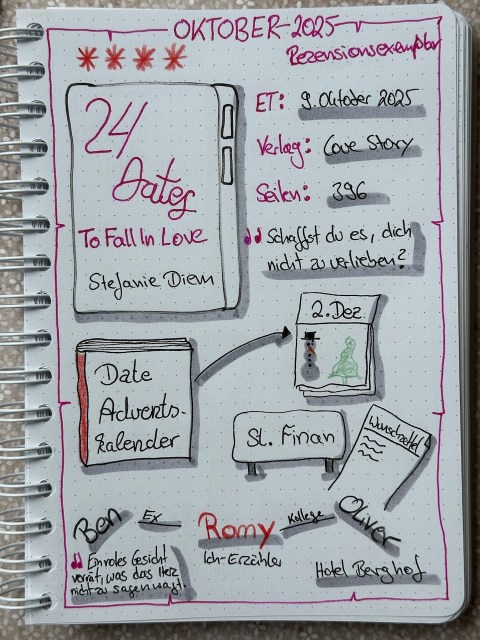 OKTOBER-2025
Rezensionsexemplar
24
Dates
To Fall In Love
Stefanie Diem
ET: 9. Oktober 2025
Verlag: Love Story
Seiten: 396
Schaffst du es, dich
nicht zu verlieben?
2. Dez.
Date
Advents-
kalender
St. Finan
Wunschzettel
Ben Ex Romy Kollege Oliver
Ich-Erzähler
Ein rotes Gesicht
verrät, was das Herz
nicht zu sagen wagt.
Hotel Berghof